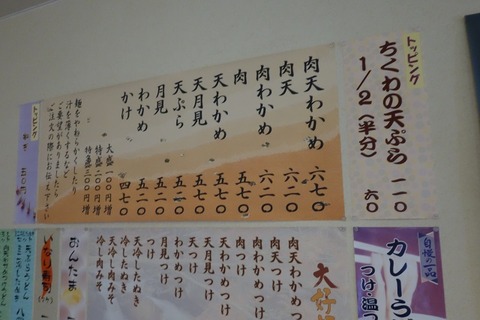 トッピング
ちくわの天ぷら 一一〇
1/2（半分） 六〇
肉天わかめ 六七〇
肉天 六二〇
肉わかめ 六二〇
肉 五七〇
天わかめ 五七〇
天月見 五七〇
天ぷら 五二〇
月見 五二〇
わかめ 五二〇
かけ 四七〇
大盛一〇〇円増
特盛二〇〇円増
三〇〇円増
麺をやわらかくしたり
汁を薄くするなど
ご要望がありましたら
ご注文の際にお伝え下さい
トッピング
自慢の一品
カレーう
つけ・温つ
肉天わかめつけ
肉天つけ
肉わかめつけ
肉つけ
天わかめつけ
天月見つけ
天つけ
わかめつけ
月見つけ
つけ
天冷したぬき
冷したぬき
天冷し肉みそ
冷し肉みそ
おんたま
いなり寿司